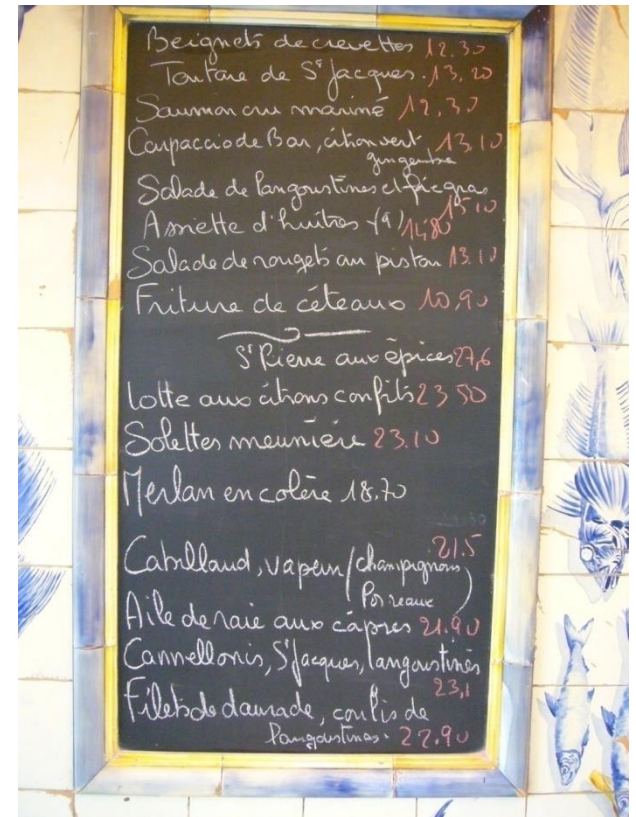 Beignets de crevettes 12.30
Tartare de St Jacques. 13,20
Saumon cru mariné 12,30
Carpaccio de Bar, citron vert 13.10
gingembre
Salade de langoustines et foie gras
15.10
Assiette d'huîtres (9) 14,80
Salade de rougets au pistou 13.10
Friture de céteaux 10,90
St Pierre aux épices 27,6
Lotte aux citrons confits 23 50
Solettes meunière 23.10
Merlan en colère 18.70
21.5
Cabillaud, vapeur (champignons
Poireaux)
Aile de raie aux câpres 21.90
Cannellonis, St Jacques, langoustines
23,1
Filets de daurade, coulis de
langoustines. 22.90